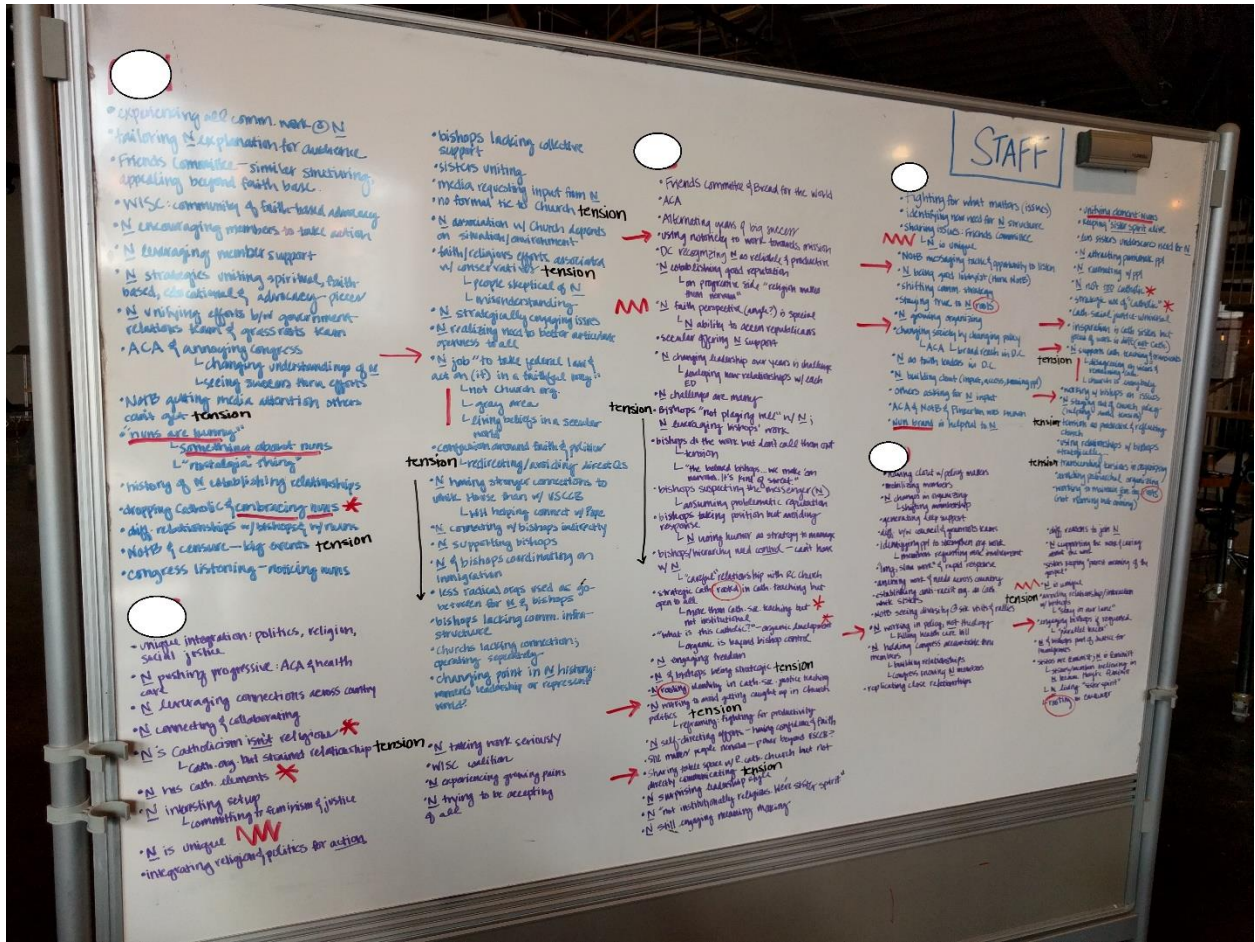 STAFF
• experiencing all comm. work @ N
• tailoring N explanation for audience
• Friends Committee – similar structuring
appealing beyond faith base
• WISC: community of faith-based advocacy
• N encouraging members to take action
• N leveraging member support
• N strategies uniting spiritual, faith
based, educational & advocacy pieces
• N unifying efforts b/w government
relations team & grassroots team
• ACA & annoying congress
└ changing understandings of N
└ seeing success thru efforts
• NotB getting media attention others
can't get tension
• "nuns are funny"
└ something about nuns
└ "nostalgia thing"
• history of N establishing relationships
• dropping Catholic & embracing nuns *
• diff. relationships w/ bishops & w/ nuns
• NotB & censure – big events tension
• congress listening – noticing nuns
• unique integration: politics, religion,
social justice
• N pushing progressive: ACA & health
care
• N leveraging connections across country
• N connecting & collaborating
• N's Catholicism isn't religious *
└ Cath. org. but strained relationship tension
• N has cath. elements *
• N interesting setup
└ committing to feminism & justice
• N is unique
• integrating religion & politics for action
• bishops lacking collective
support
• sisters uniting
• media requesting input from N
• no formal tie to Church tension
• N association w/ Church depends
on situation/environment
• faith/religious efforts associated
w/ conservatives tension
└ people skeptical of N
└ misunderstanding
• N strategically engaging issues
• N realizing need to better articulate
openness to all
• N job "to take federal law &
act on (it) in a faithful way"
└ not Church org.
└ gray area
└ living beliefs in a secular
world
• confusion around faith & politics
tension └ redirecting/avoiding direct Qs
• N having stronger connections to
White House than w/ USCCB
└ WH helping connect w/ Pope
• N connecting w/ bishops indirectly
• N supporting bishops
• N & bishops coordinating on
immigration
• less radical orgs used as go-
between for N & bishops
• bishops lacking comm. infra-
structure
• Church lacking connection;
operating separately
• changing point in N history:
leadership or represent
world?
• N taking work seriously
• WISC coalition
• N experiencing growing pains
• N trying to be accepting
of all
• Friends Committee & Bread for the World
• ACA
• Alternating years of big success
• using notoriety to work towards mission
• DC recognizing N as reliable & productive
• N establishing good reputation
└ on progressive side "religion makes
them nervous"
• N faith perspective (angle?) is special
└ N ability to access republicans
• secular offering N support
• N changing leadership over years is challenge
└ developing new relationships w/ each
ED
• N challenges are many
tension • Bishops "not playing ball" w/ N;
N leveraging bishops' work
• bishops do the work but don't call them out
└ tension
└ "the beloved bishops... we make 'em
nervous. It's kind of sweet."
• bishops suspecting the messenger (N)
└ assuming problematic reputation
• bishops taking position but avoiding
response
└ N using humor as strategy to manage
• bishops/hierarchy need control – can't have
w/ N
└ "careful" relationship with RC church
• strategic cath. rooted in cath. teaching but
open to all
└ more than cath. soc. teaching but *
not institutional *
• "what is this catholic?" – organic development
└ organic is beyond bishop control
• N engaging freedom
• N & bishops being strategic tension
• N rooting identity in cath. soc. justice teaching
• N working to avoid getting caught up in Church
politics tension
└ reframing: fighting for productivity
• N self-directing efforts – having confidence & faith
• still makes people nervous – power beyond USCCB?
• sharing table space w/ R. cath. church but not
directly communicating tension
• N surprising leadership style
• N "not institutionally religious. Here: sister spirit"
• N still engaging meaning making
• Fighting for what matters (issues)
• identifying new need for N structure
• sharing issues: Friends Committee
└ N is unique
• NotB messaging tactic & opportunity to listen
• N being good lobbyist (thru NotB)
• shifting comm. strategy
• staying true to N roots
• N growing organizing
• changing society by changing policy
└ ACA └ broad reach in D.C.
• N as faith leaders in D.C.
• N building clout (impact, access, knowing ppl)
• others asking for N input
• ACA & NotB & Pimpinton
• Nun brand is helpful to N
• having clout w/ policy makers
• mobilizing members
• N changes in organizing
└ shifting membership
• generating deep support
• diff. b/w council & grassroots teams
• identifying ppl to strengthen org. work
└ members requesting more involvement
• "long, slow work" & rapid response
• NotB seeing diversity @ site visits & rallies
• N working in policy, not theology
└ killing health care bill
• N holding Congress accountable thru
members
└ building relationships
└ Congress knowing N members
• replicating close relationships
• unifying element: nuns
• keeping sister spirit alive
• N attracting passionate ppl
• N connecting w/ ppl
• N not too catholic *
• strategic use of "catholic" *
• Cath. social justice – universal
• inspiration is cath. sisters but
group of work is diff. (not cath)
• N supports cath. teaching
tension
• working w/ bishops on issues
• N staying out of church policy
tension
church
• using relationships w/ bishops
tension • transcending tensions in organizing
(not allowing rule coming)
• diff. reasons to join N
• N supporting the work & caring
about the work
• N is unique
tension • avoiding relationship/interaction
w/ bishops
└ "stay in our lane"
• engaging bishops if required
└ "parallel tracks"
immigrants
└ N living "sister spirit"
└ rooting